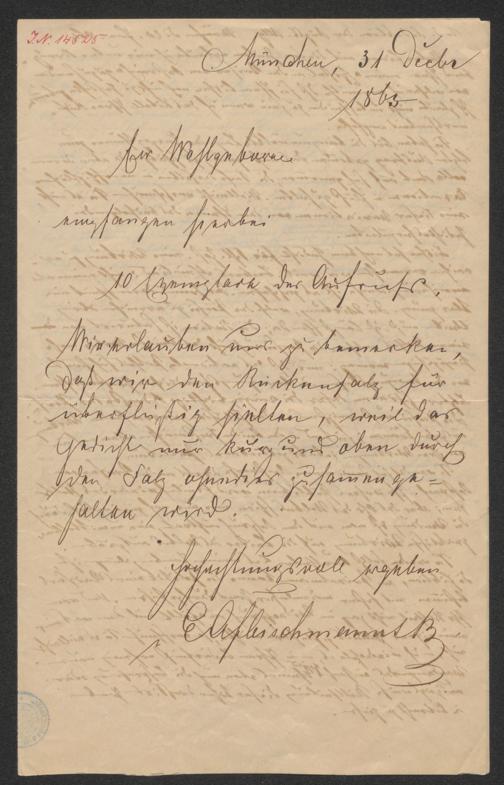 J.N. 14525
München, 31 Decbr
1863
Euer Wohlgeboren
empfangen hierbei
10 Exemplare des Aufrufs.
Wir erlauben uns zu bemerken,
daß wir den Rückenfalz für
überflüßig hielten, weil das
Gedicht nur kurz und oben durch
den Falz ohnedies zusammenge=
halten wird.
Hochachtungsvoll ergeben
E A Fleischmann's B